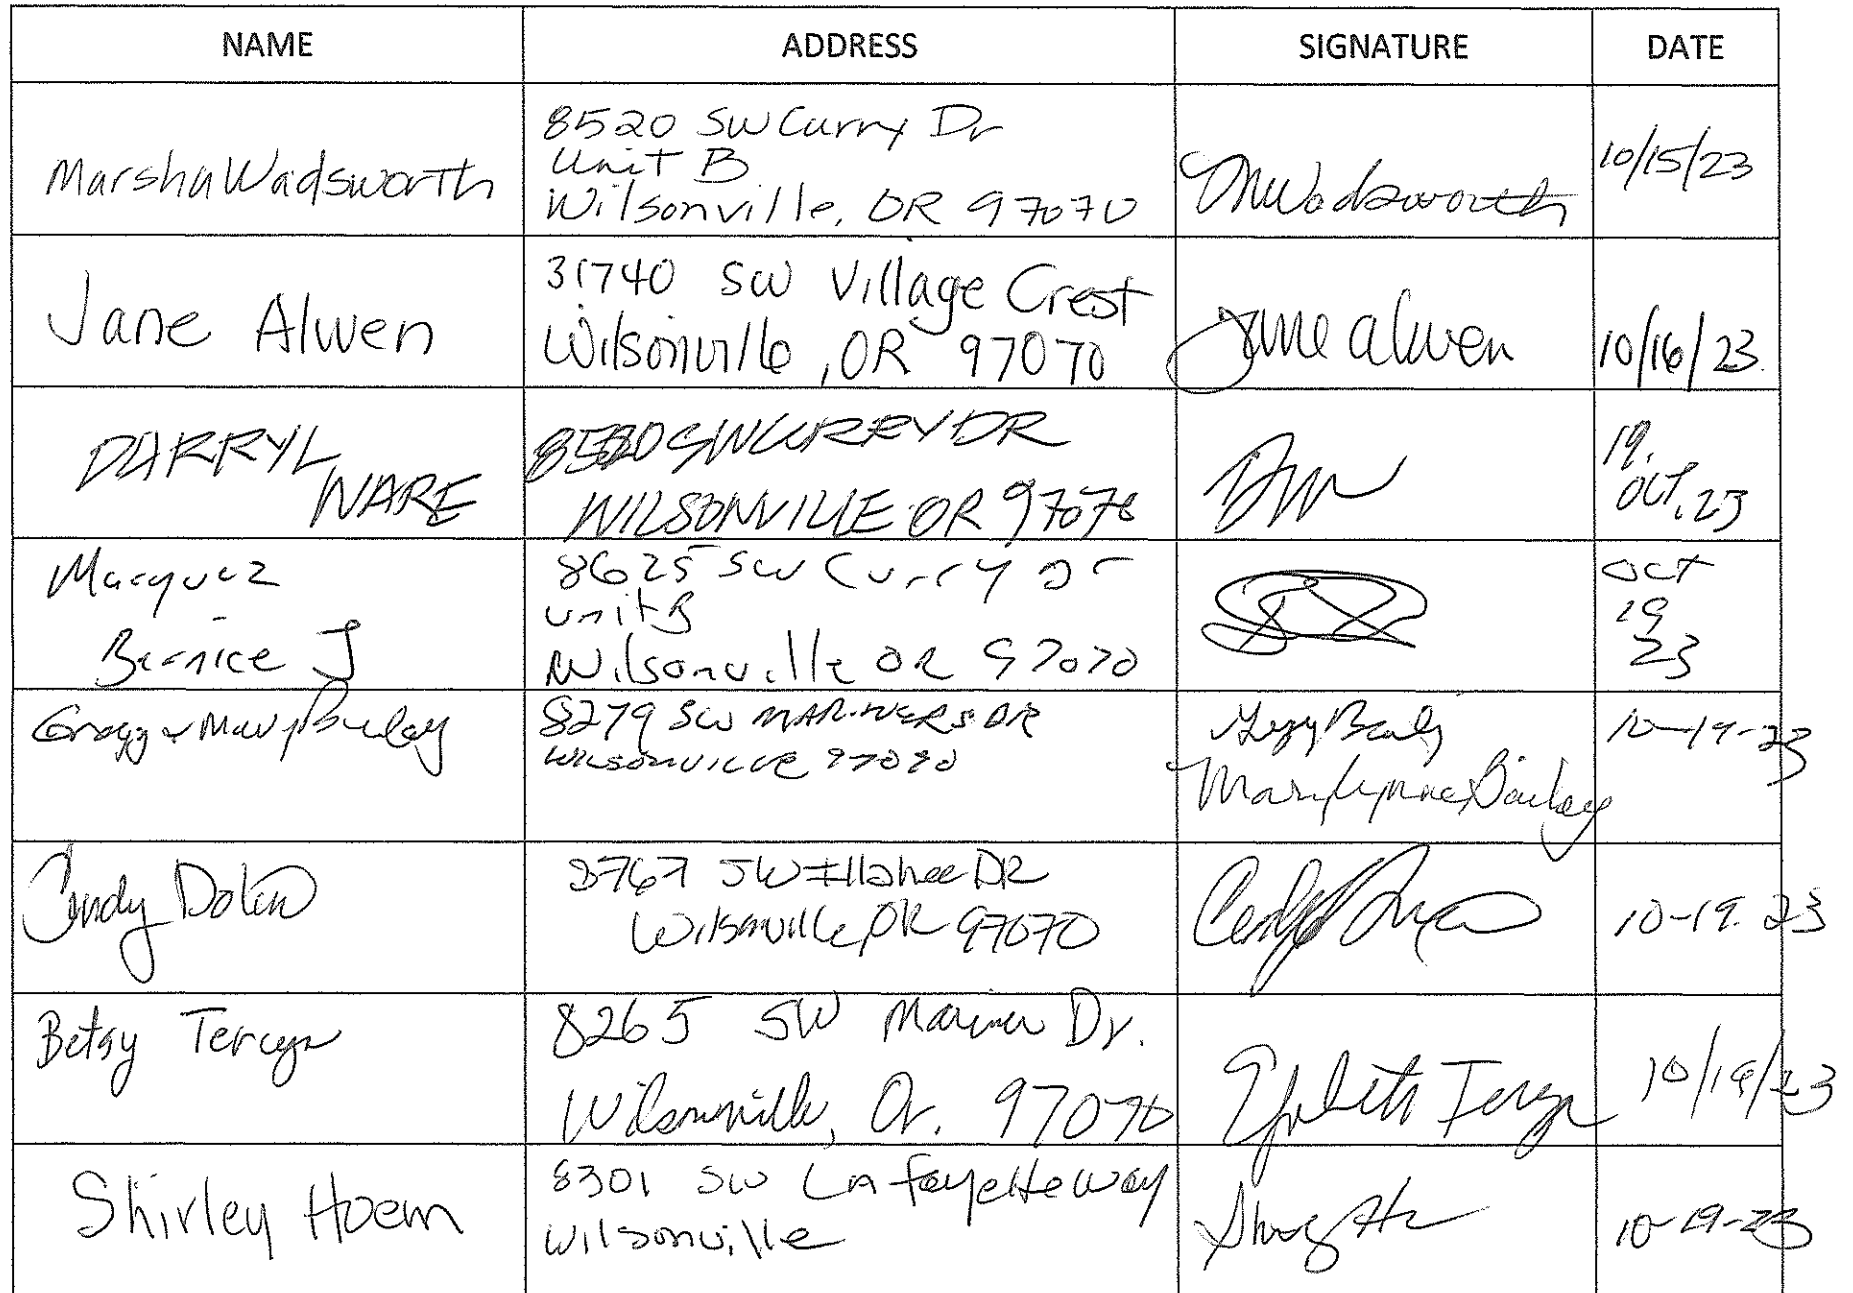 NAME ADDRESS SIGNATURE DATE
Marsha Wadsworth
8520 SW Curry Dr
Unit B
Wilsonville, OR 97070
MWadsworth
10/15/23
Jane Alwen
31740 SW Village Crest
Wilsonville, OR 97070
Jane Alwen
10/16/23
DARRYL
WARE
SW CURRY DR
WILSONVILLE OR 97070
19.
OCT. 23
Marquez
Bernice J
8625 SW Curry Dr
unit B
Wilsonville OR 97070
Oct
19
23
Gregg & Mary Bailey
8279 SW MARINERS DR
WILSONVILLE 97070
Gregg Bailey
Mary Lynne Bailey
10-19-23
Cindy
8767 SW Illahee DR
Wilsonville OR 97070
10-19.23
Betsy
8265 SW Mariner Dr.
Wilsonville, Or. 97070
10/19/23
Shirley Hoem
8301 SW Lafayette Way
Wilsonville
10-19-23